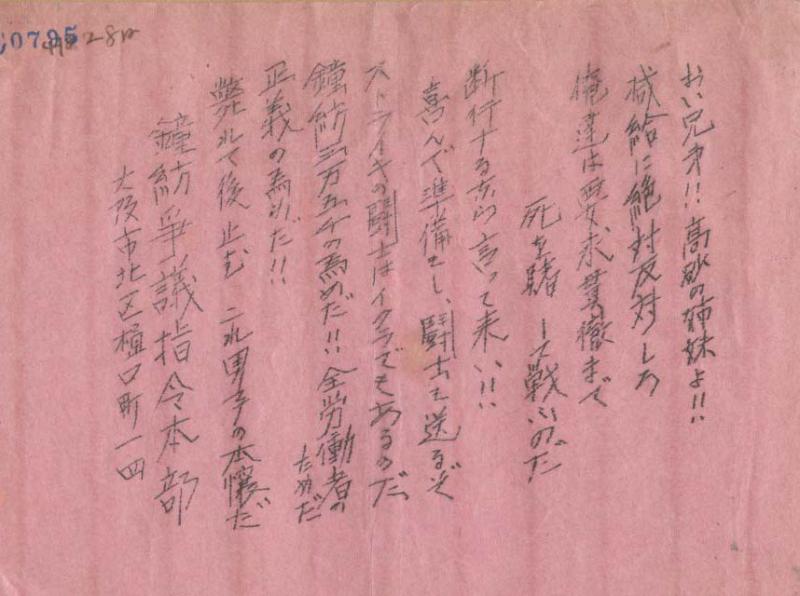 C0795
28日
おい兄弟!!高砂の姉妹よ!!
減給に絶対反対しろ
俺達は要求貫徹まで
死を賭して戦ふのだ
断行するなら言って来い!!
喜んで準備をし、闘士を送るぞ
ストライキの闘士はイクラでもあるのだ、
鐘紡三万五千の為めだ!!全労働者の
ためだ
正義の為めだ!!
斃れて後止む これ男子の本懐だ
鐘紡争議指令本部
大阪市北区樋口町一四